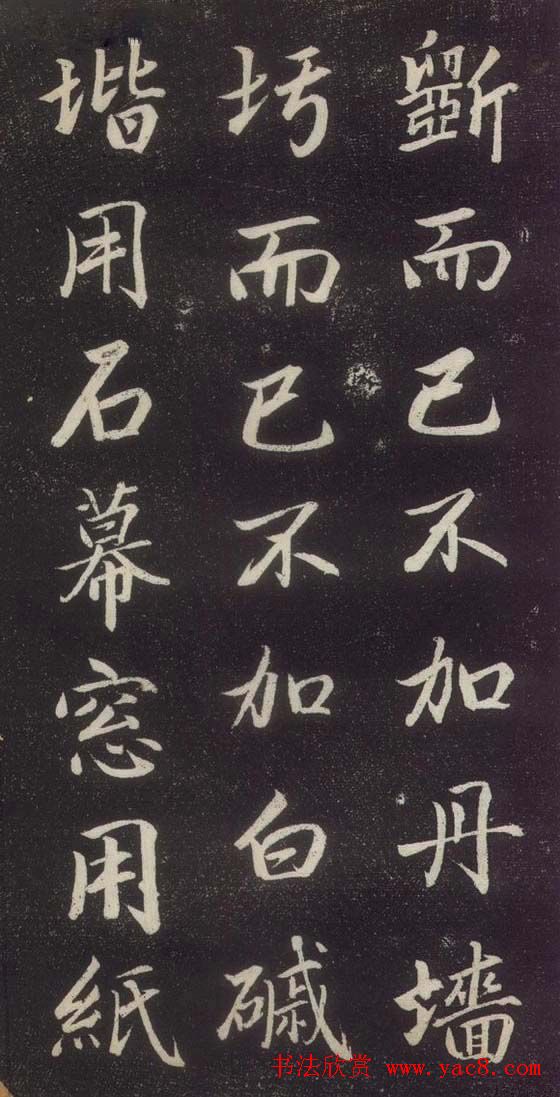 斲而已不加丹墻
圬而已不加白磩
堦用石幕窓用紙
书法欣赏 www.yac8.com